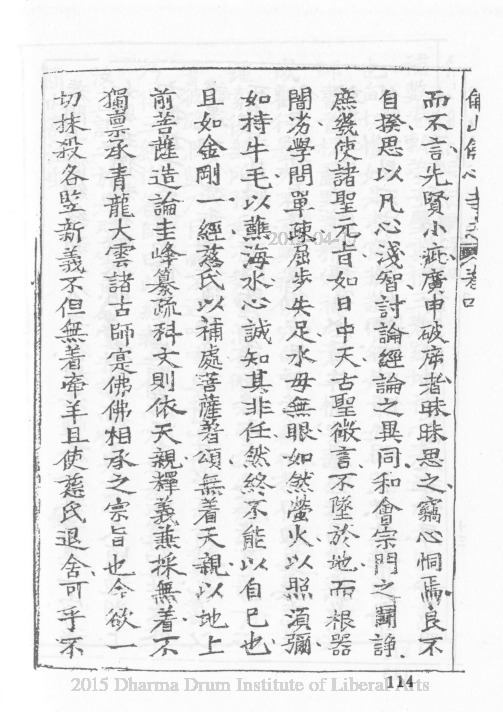 而不言先賢小疵廣申破斥者昧昧思之竊心恫焉良不
自揆思以凡心淺智討論經論之異同和會宗門之鬪諍
庶幾使諸聖元旨如日中天古聖微言不墜於地而根器
闇劣學問單疎屈步失足水母無眼如然螢火以照須彌
如持牛毛以蘸海水心誠知其非任然終不能以自已也
且如金剛一經慈氏以補處菩薩著頌無着天親以地上
前菩薩造論圭峰纂疏科文則依天親釋義兼採無着不
獨禀承青龍大雲諸古師寔佛佛相承之宗旨也今欲一
切抹殺各竪新義不但無着牽羊且使慈氏退舍可乎不
114
2015 Dharma Drum Institute of Liberal Arts